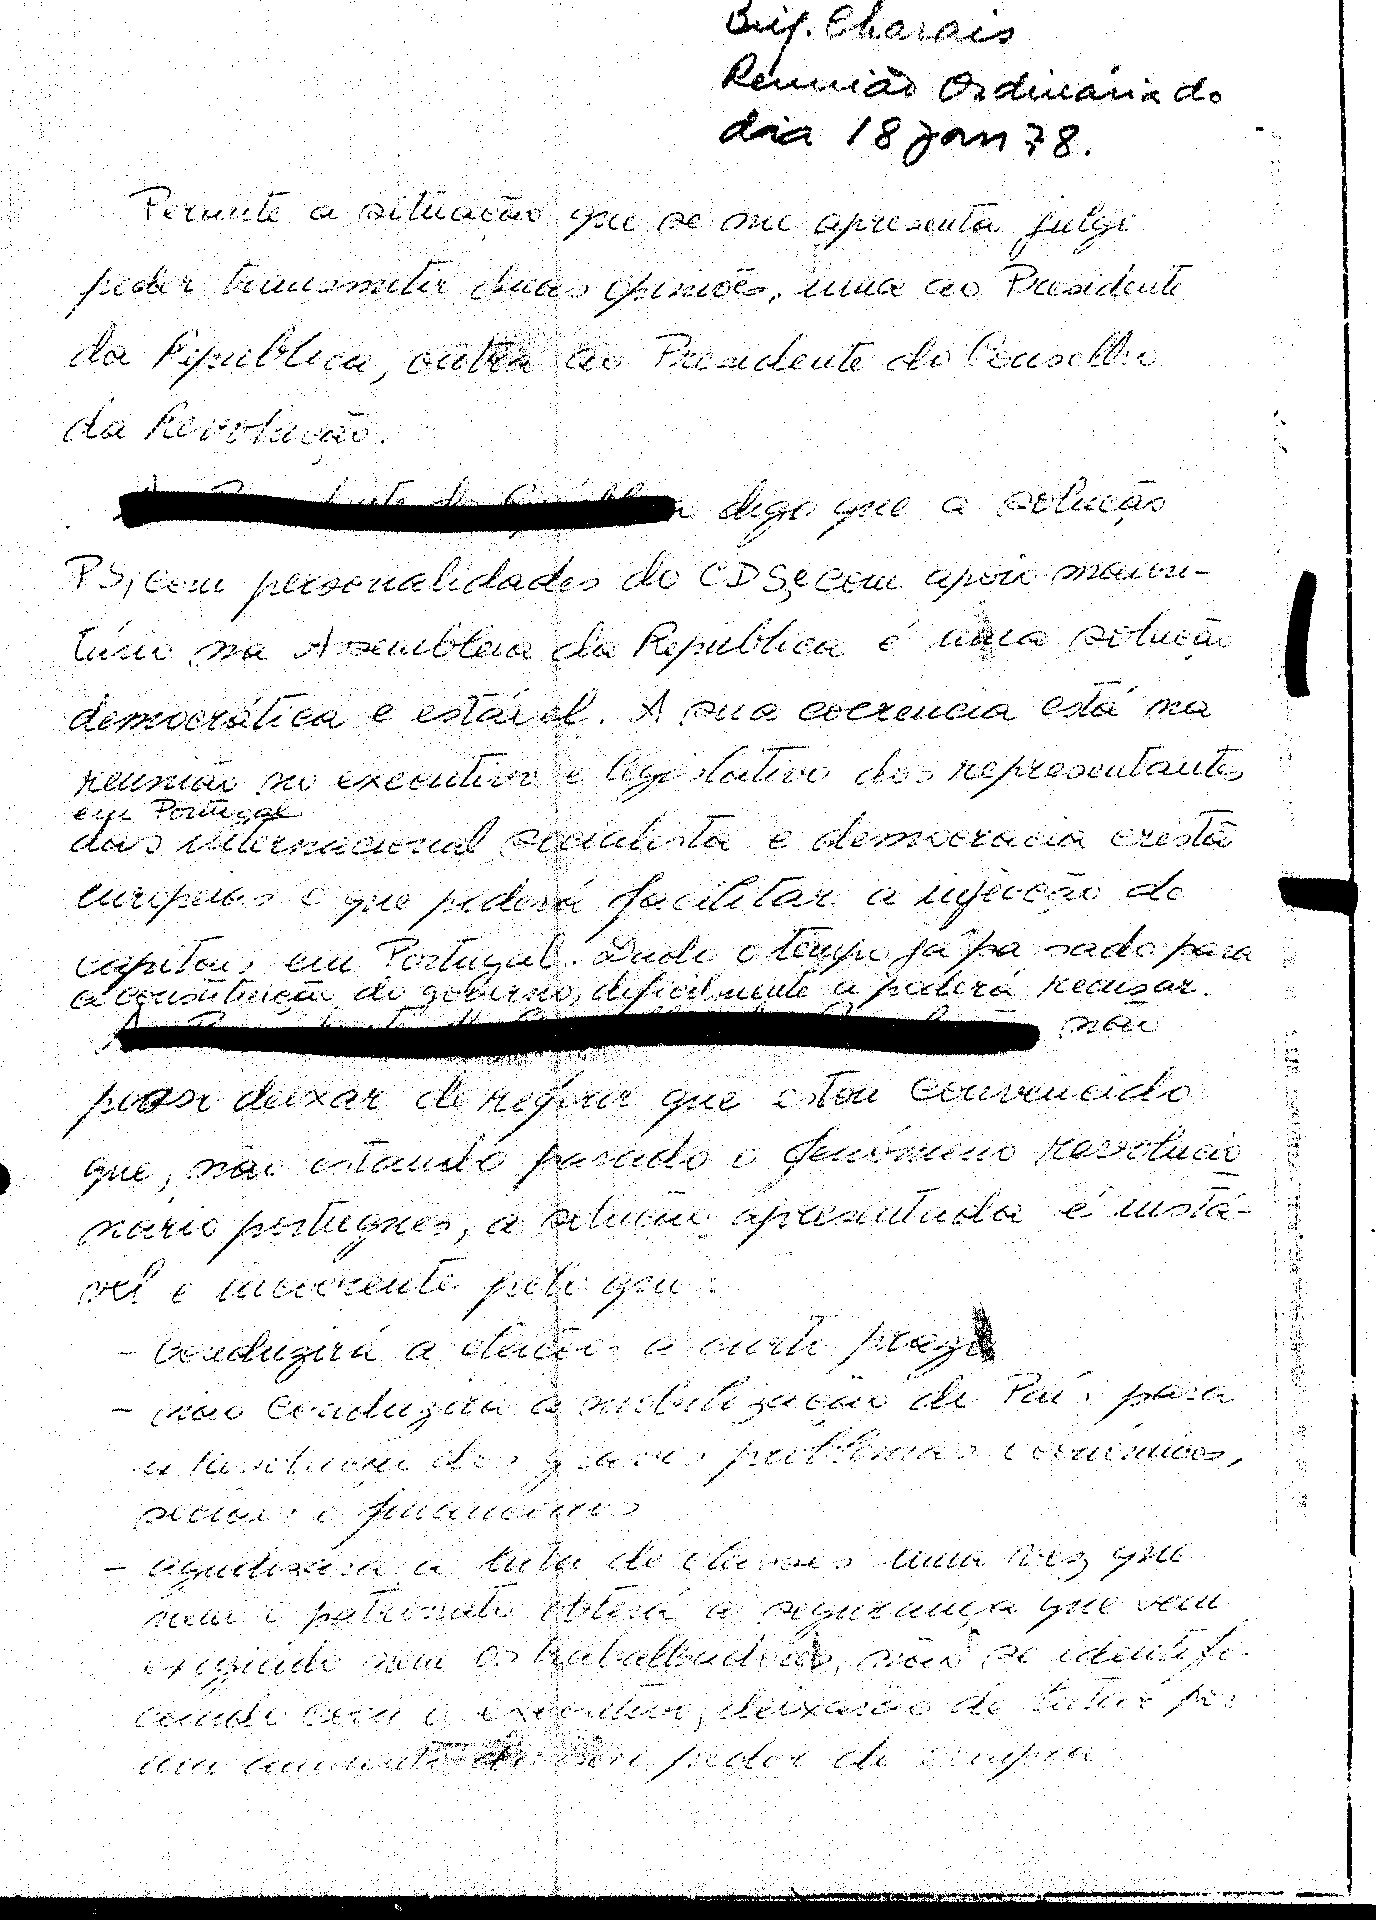 Brig. Charais
Reunião Ordinária do
dia 18 Jan 78.
Perante a situação que se me apresenta julgo
poder transmitir duas opiniões, uma ao Presidente
da República, outra ao Presidente do Conselho
da Revolução.
digo que a solução
PS, com personalidades do CDS, e com apoio maiori-
tário na Assembleia da República é uma solução
democrática e estável. A sua coerencia está na
reunião no executivo e legislativo dos representantes
em Portugal
das internacional socialista e democracia cristã
europeias o que poderá facilitar a injecção de
capitais em Portugal. Dado o tempo já passado para
a constituição do governo, dificilmente a poderá recusar.
não
posso deixar de referir que estou convencido
que, não estando parado o fenómeno revolucio
nário português, a solução apresentada é instá-
vel e incoerente pelo que:
- Conduzirá a eleições a curto prazo
- não conduzirá à mobilização do País para
a resolução dos graves problemas económicos,
sociais e financeiros
- agudizará a luta de classes uma vez que
nem o patronato obterá a segurança que vem
exigindo nem os trabalhadores, não se identifi-
cando com o executivo, deixarão de lutar por
um aumento do seu poder de compra